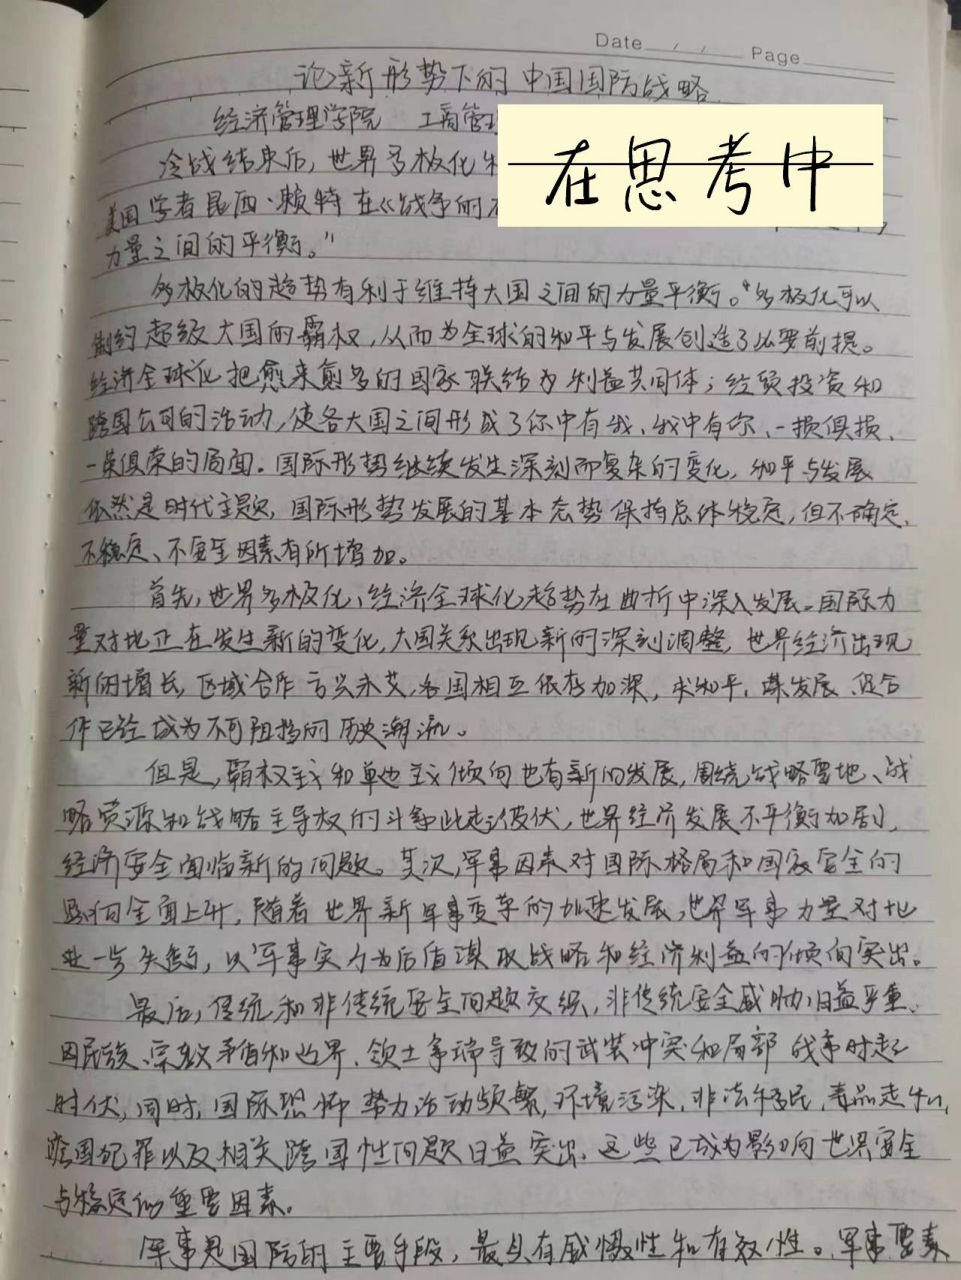 Date / / Page
论新形势下的中国国防战略
经济管理学院 工商管理
在思考中
冷战结束后,世界多极化
美国学者昆西·赖特在《战争的
力量之间的平衡。"
多极化的趋势有利于维持大国之间的力量平衡。"多极化可以
制约超级大国的霸权,从而为全球的和平与发展创造了必要前提。
经济全球化把愈来愈多的国家联结为利益共同体;经贸投资和
跨国公司的活动,使各大国之间形成了你中有我、我中有你、一损俱损、
一荣俱荣的局面。国际形势继续发生深刻而复杂的变化,和平与发展
依然是时代主题,国际形势发展的基本态势保持总体稳定,但不确定、
不稳定、不安全因素有所增加。
首先,世界多极化、经济全球化趋势在曲折中深入发展。国际力
量对比正在发生新的变化,大国关系出现新的深刻调整,世界经济出现
新的增长,区域合作方兴未艾,各国相互依存加深,求和平、谋发展、促合
作已经成为不可阻挡的历史潮流。
但是,霸权主义和单边主义倾向也有新的发展,围绕战略要地、战
略资源和战略主导权的斗争此起彼伏,世界经济发展不平衡加剧,
经济安全面临新的问题。其次,军事因素对国际格局和国家安全的
影响全面上升,随着世界新军事变革的加速发展,世界军事力量对比
进一步失衡,以军事实力为后盾谋取战略和经济利益的倾向突出。
最后,传统和非传统安全问题交织,非传统安全威胁日益严重。
因民族、宗教矛盾和边界、领土争端导致的武装冲突和局部战争时起
时伏,同时,国际恐怖势力活动频繁,环境污染、非法移民、毒品走私、
跨国犯罪以及相关跨国性问题日益突出,这些已成为影响世界安全
与稳定的重要因素。
军事是国防的主要手段,最具有威慑性和有效性。军事要素